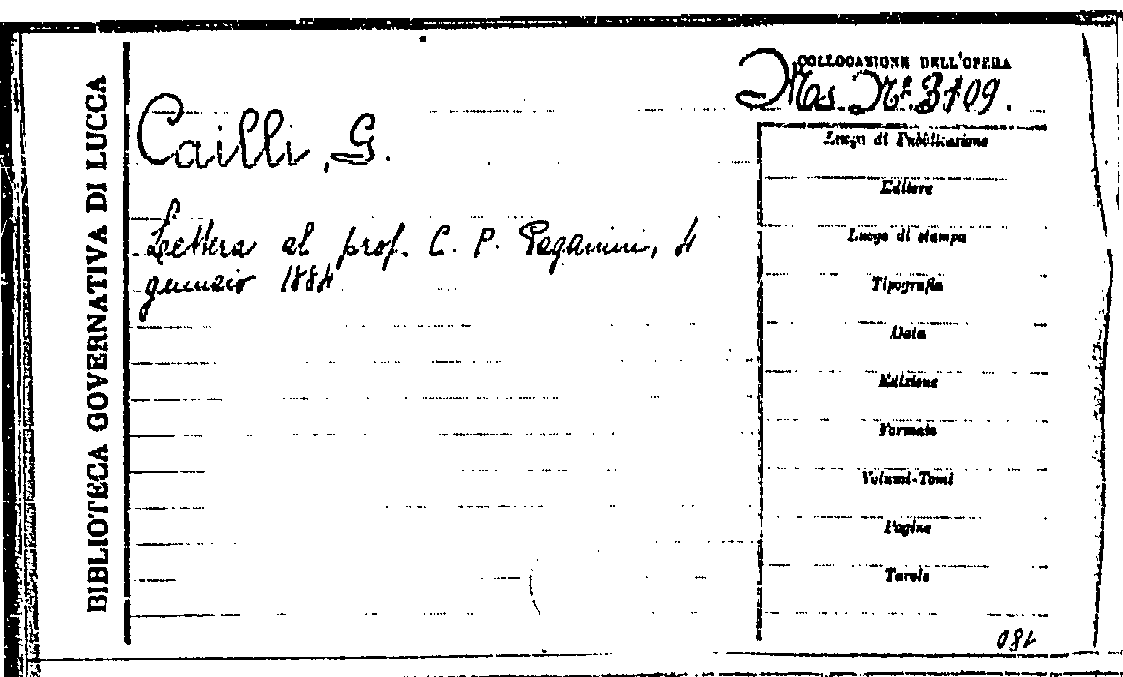 BIBLIOTECA GOVERNATIVA DI LUCCA
COLLOCAZIONE DELL'OPERA
Ms. N.° 3109.
Cailli, G.
Lettera al prof. C. P. Paganini, 4
gennaio 1884
Luogo di Pubblicazione
Editore
Luogo di stampa
Tipografia
Data
Edizione
Formato
Volumi-Tomi
Pagine
Tavole